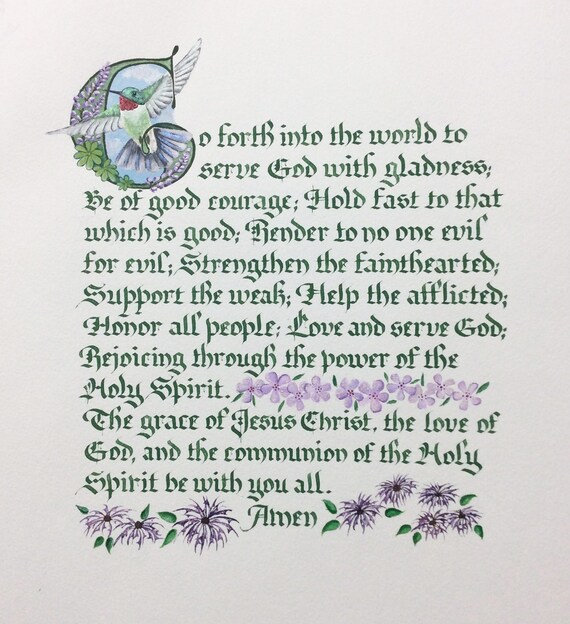 Go forth into the world to
serve God with gladness;
Be of good courage; Hold fast to that
which is good; Render to no one evil
for evil; Strengthen the fainthearted;
Support the weak; Help the afflicted;
Honor all people; Love and serve God;
Rejoicing through the power of the
Holy Spirit.
The grace of Jesus Christ, the love of
God, and the communion of the Holy
Spirit be with you all.
Amen